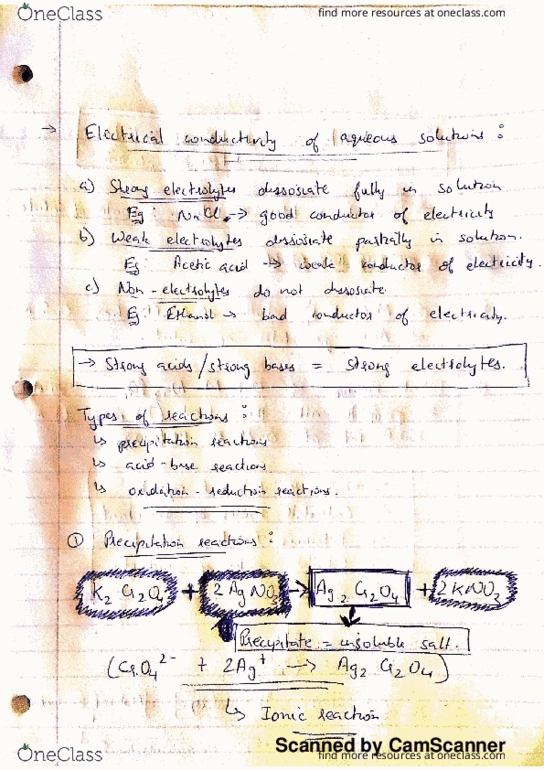 OneClass
find more resources at oneclass.com
→ Electrical conductivity of aqueous solutions :
a) Strong electrolytes dissosiate fully in solution
Eg : NaCl → good conductor of electricity
b) Weak electrolytes dissosiate partially in solution.
Eg: Acetic acid → weak conductor of electricity.
c) Non-electrolytes do not dissosiate.
Eg: Ethanol → bad conductor of electricity.
→ Strong acids/strong bases = Strong electrolytes.
Types of reactions :
↳ precipitation reactions
↳ acid-base reactions
↳ oxidation-reduction reactions.
① Precipitation reactions :
K2 Cr2O4 + 2 AgNO3 → Ag2 Cr2O4 + 2 KNO3
Precipitate = insoluble salt.
(CrO4 2- + 2Ag+ → Ag2 Cr2O4)
↳ Ionic reaction
Scanned by CamScanner
OneClass
find more resources at oneclass.com